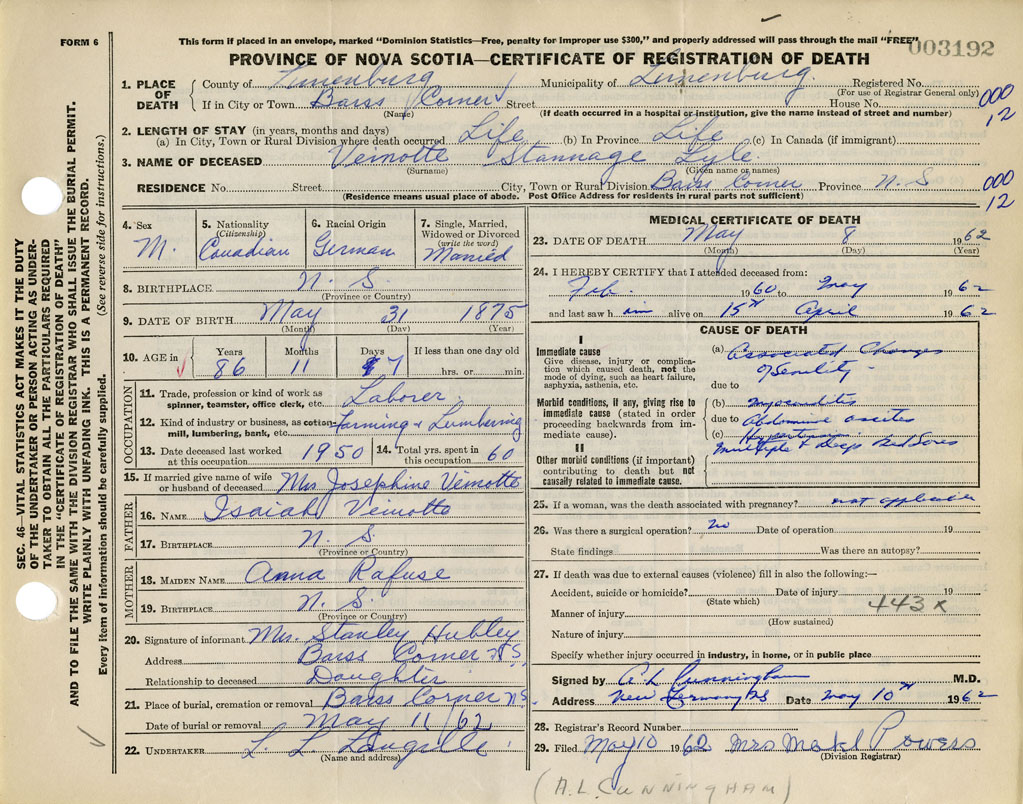 FORM 6
This form if placed in an envelope, marked "Dominion Statistics—Free, penalty for improper use $300," and properly addressed will pass through the mail "FREE"
003192
PROVINCE OF NOVA SCOTIA—CERTIFICATE OF REGISTRATION OF DEATH
1. PLACE OF DEATH
County of Lunenburg Municipality of Lunenburg. Registered No.
(For use of Registrar General only)
If in City or Town Barss Corner Street House No.
(Name) (If death occurred in a hospital or institution, give the name instead of street and number)
000
12
2. LENGTH OF STAY (in years, months and days)
(a) In City, Town or Rural Division where death occurred Life (b) In Province Life (c) In Canada (if immigrant)
3. NAME OF DECEASED Veinotte Stannage Lyle.
(Surname) (Given name or names)
RESIDENCE No. Street City, Town or Rural Division Barss Corner Province N.S
(Residence means usual place of abode. Post Office Address for residents in rural parts not sufficient)
000
12
4. Sex M.
5. Nationality (Citizenship) Canadian
6. Racial Origin German
7. Single, Married, Widowed or Divorced (write the word) Married
8. BIRTHPLACE N. S.
(Province or Country)
9. DATE OF BIRTH May 31 1875
(Month) (Day) (Year)
10. AGE in Years Months Days If less than one day old
86 11 7 hrs. or min.
OCCUPATION
11. Trade, profession or kind of work as spinner, teamster, office clerk, etc. Laborer.
12. Kind of industry or business, as cotton-mill, lumbering, bank, etc. Farming & Lumbering
13. Date deceased last worked at this occupation 1950
14. Total yrs. spent in this occupation 60
15. If married give name of wife or husband of deceased Mrs Josephine Veinotte
FATHER
16. NAME Isaiah Veinotte
17. BIRTHPLACE N. S.
(Province or Country)
MOTHER
18. MAIDEN NAME Anna Rafuse
19. BIRTHPLACE N. S.
(Province or Country)
20. Signature of informant Mrs. Stanley Hubley
Address Barss Corner N.S.
Relationship to deceased Daughter
21. Place of burial, cremation or removal Barss Corner N.S
Date of burial or removal May 11/62
22. UNDERTAKER L. L. Langille
(Name and address)
MEDICAL CERTIFICATE OF DEATH
23. DATE OF DEATH May 8 1962
(Month) (Day) (Year)
24. I HEREBY CERTIFY that I attended deceased from:
Feb. 1960 to May 1962
and last saw him alive on 15th April 1962
CAUSE OF DEATH
I
Immediate cause
Give disease, injury or complication which caused death, not the mode of dying, such as heart failure, asphyxia, asthenia, etc.
(a) Associated Changes
of Senility
due to
Morbid conditions, if any, giving rise to immediate cause (stated in order proceeding backwards from immediate cause).
(b) Myocarditis
due to Abdomine ascites
(c) Hypertension
Multiple & Deep Bed Sores
II
Other morbid conditions (if important) contributing to death but not causally related to immediate cause.
25. If a woman, was the death associated with pregnancy? not applicable
26. Was there a surgical operation? No Date of operation 19
State findings Was there an autopsy?
27. If death was due to external causes (violence) fill in also the following:—
Accident, suicide or homicide? Date of injury 19
(State which)
443x
Manner of injury
(How sustained)
Nature of injury
Specify whether injury occurred in industry, in home, or in public place
Signed by A L Cunningham M.D.
Address New Germany NS Date May 10th 1962
28. Registrar's Record Number
29. Filed May 10 1962 Mrs Powers
(Division Registrar)
(A.L. CUNNINGHAM)
SEC. 46—VITAL STATISTICS ACT MAKES IT THE DUTY
OF THE UNDERTAKER OR PERSON ACTING AS UNDER-
TAKER TO OBTAIN ALL THE PARTICULARS REQUIRED
IN THE "CERTIFICATE OF REGISTRATION OF DEATH"
AND TO FILE THE SAME WITH THE DIVISION REGISTRAR WHO SHALL ISSUE THE BURIAL PERMIT.
WRITE PLAINLY WITH UNFADING INK. THIS IS A PERMANENT RECORD.
Every item of information should be carefully supplied. (See reverse side for instructions.)